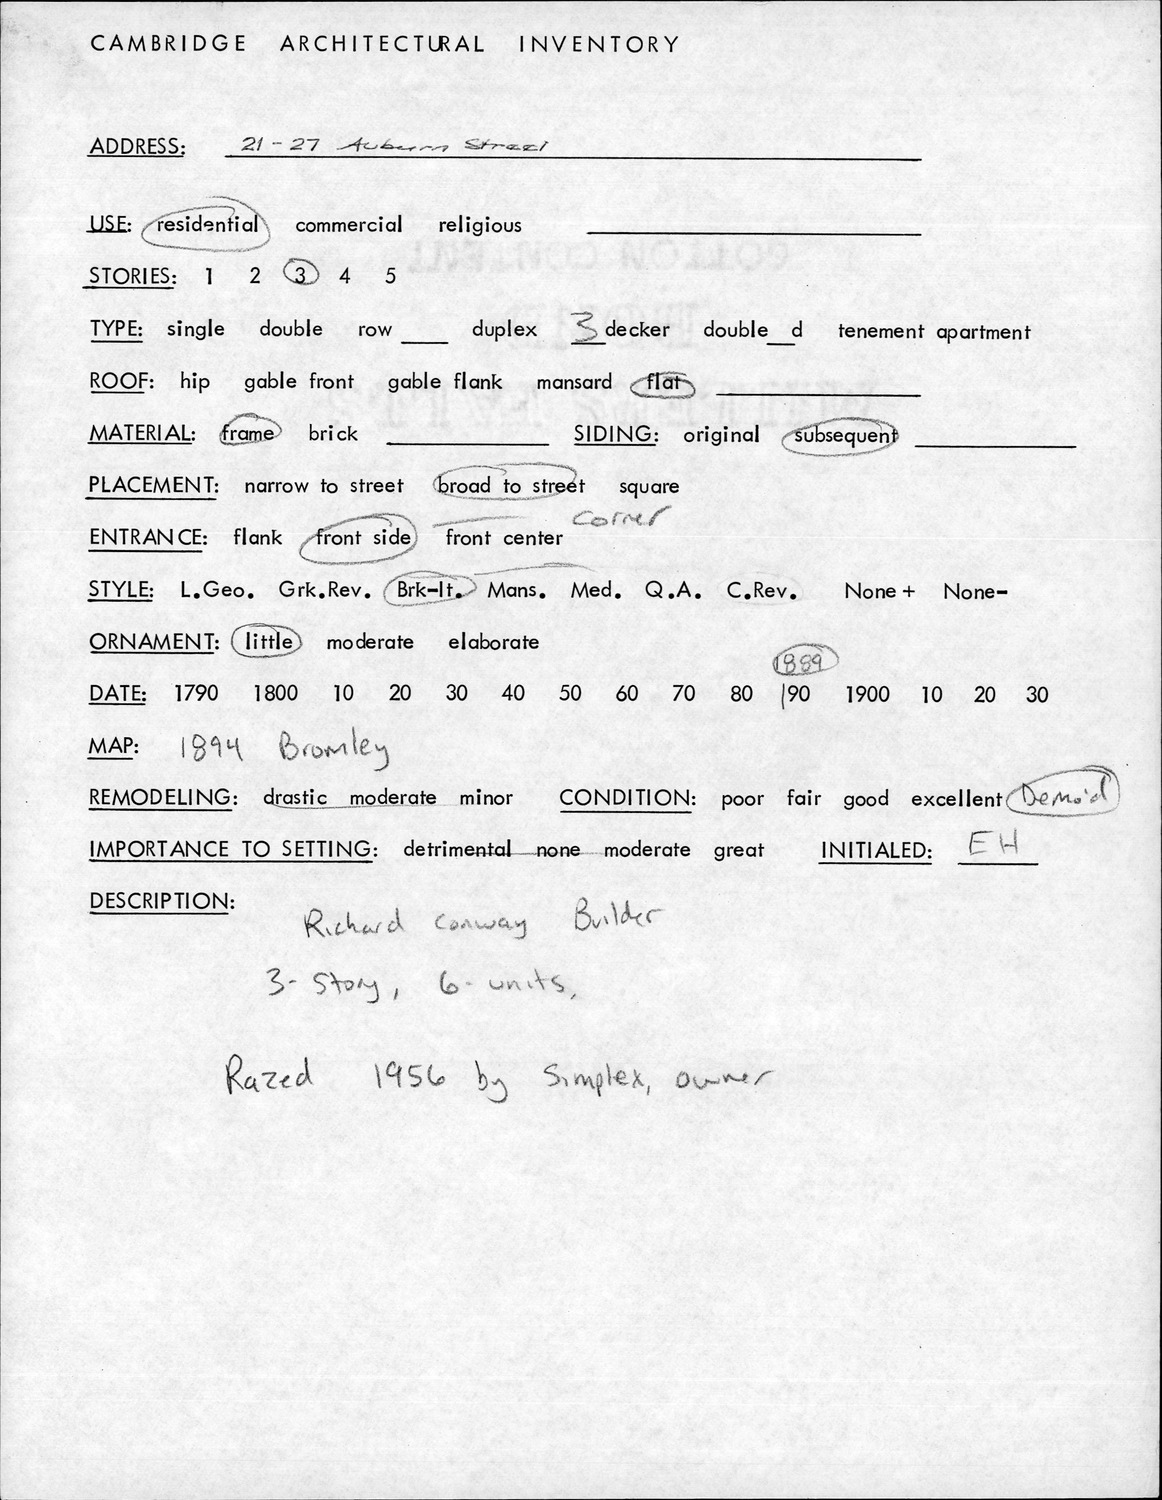 CAMBRIDGE ARCHITECTURAL INVENTORY
ADDRESS: 21-27 Auburn Street
USE: residential commercial religious
STORIES: 1 2 3 4 5
TYPE: single double row ___ duplex 3 decker double __d tenement apartment
ROOF: hip gable front gable flank mansard flat
MATERIAL: frame brick SIDING: original subsequent
PLACEMENT: narrow to street broad to street square
corner
ENTRANCE: flank front side front center
STYLE: L.Geo. Grk.Rev. Brk-It. Mans. Med. Q.A. C.Rev. None+ None-
ORNAMENT: little moderate elaborate
1889
DATE: 1790 1800 10 20 30 40 50 60 70 80 90 1900 10 20 30
MAP: 1894 Bromley
REMODELING: drastic moderate minor CONDITION: poor fair good excellent Demo'd
IMPORTANCE TO SETTING: detrimental none moderate great INITIALED: EH
DESCRIPTION:
Richard Conway Builder
3-Story, 6-units,
Razed 1956 by Simplex, owner